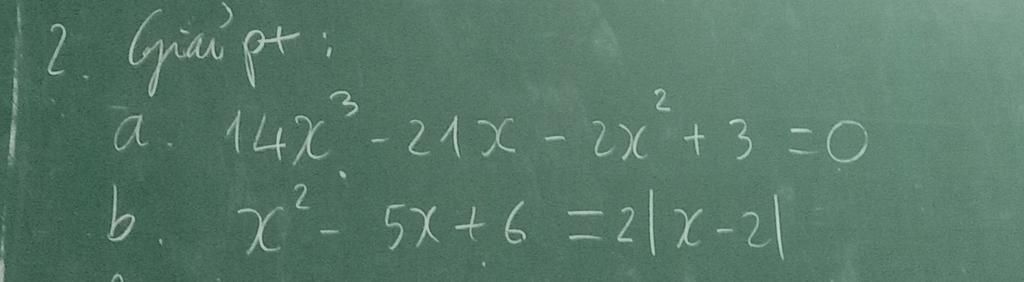 2. Giải pt :
a. 14x³ - 21x - 2x² + 3 = 0
b. x² - 5x + 6 = 2|x - 2|